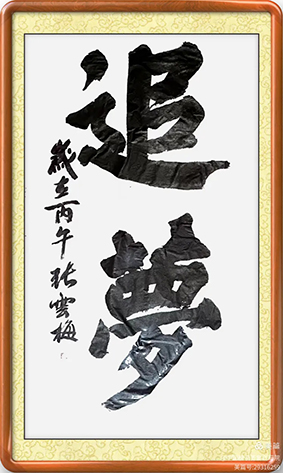 追夢
歲在丙午 張雲梅
美篇号:29316255